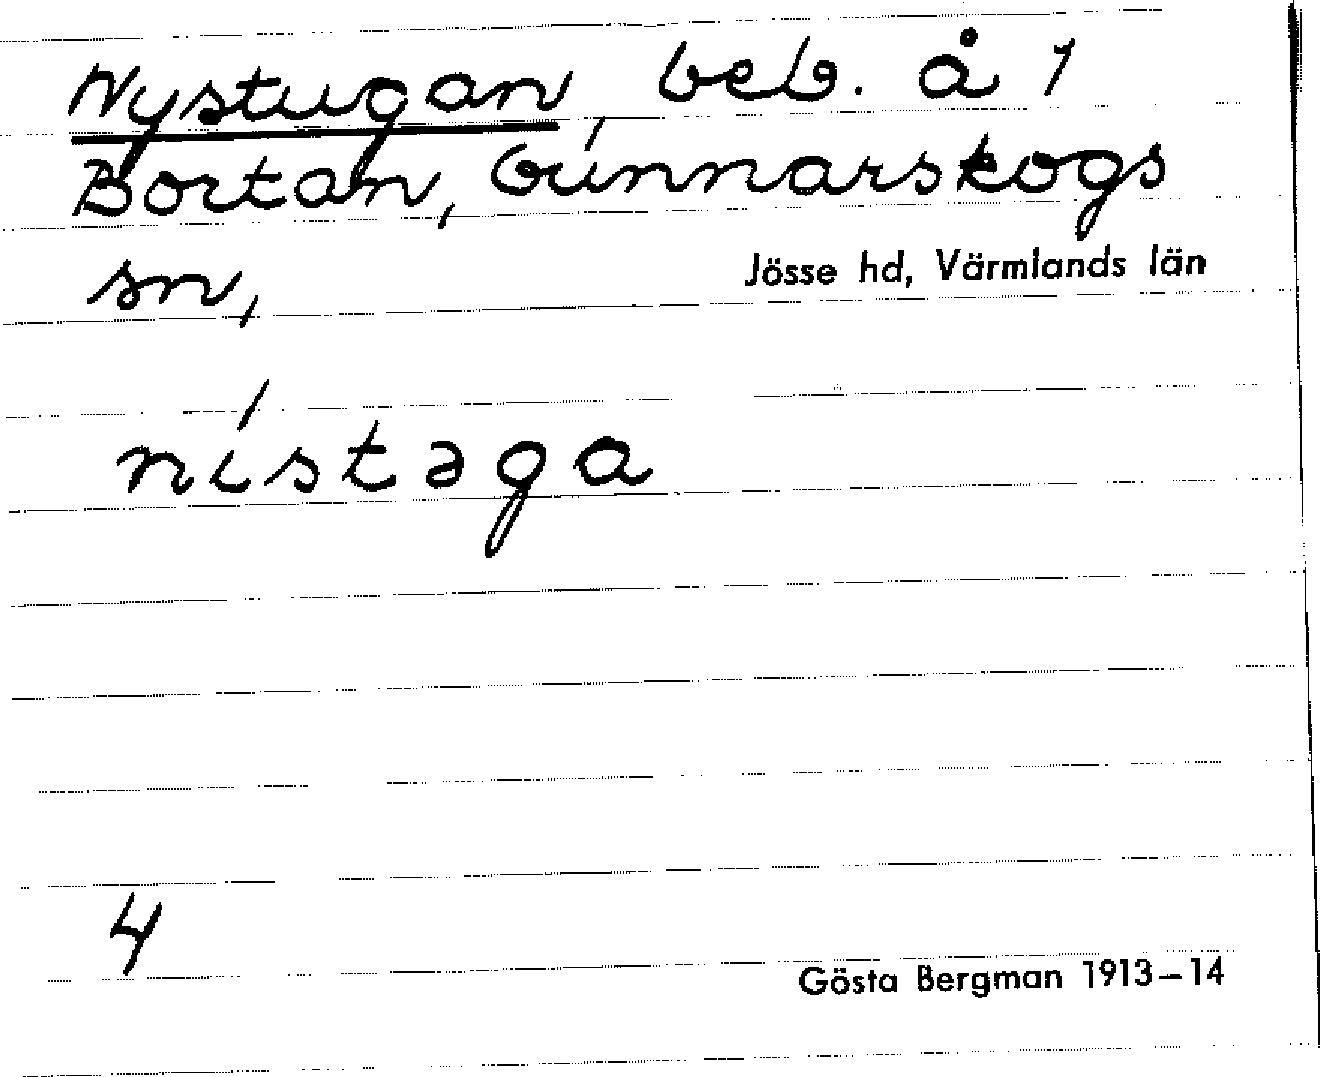 Nystugan, beb. å 1
Bortan, Gunnarskogs
sn, Jösse hd, Värmlands län
nístəga
4
Gösta Bergman 1913–14